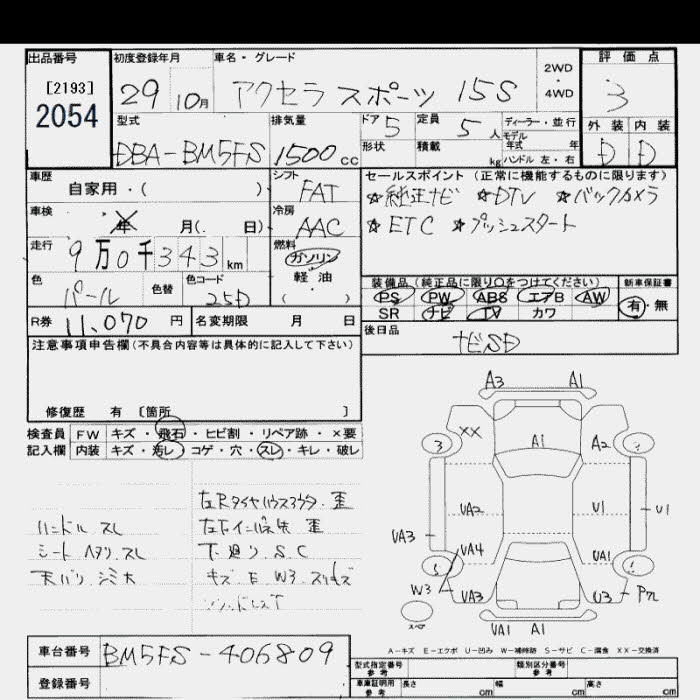 出品番号 初度登録年月 車名・グレード 2WD・4WD 評価点
[2193]
2054
29 10月 アクセラ スポーツ 15S 3
型式 排気量 ドア 5 定員 5人 ディーラー・並行 外装 内装
モデル年式 年
DBA-BM5FS 1500cc 形状 積載 kg ハンドル 左・右 D D
車歴 シフト セールスポイント (正常に機能するものに限ります)
自家用・( ) FAT ☆純正ナビ ☆DTV ☆バックカメラ
車検 年 月(. 日) 冷房 AAC ☆ETC ☆プッシュスタート
走行 9万0千343km 燃料 ガソリン
軽油
( )
色 パール 色替 色コード 25D
装備品 (純正品に限り○をつけてください) 新車保証書
PS PW ABS エアB AW 有・無
SR ナビ TV カワ
R券 11,070円 名変期限 月 日 後日品
ナビSD
注意事項申告欄(不具合内容等は具体的に記入して下さい)
修復歴 有 〔箇所 〕
検査員 FW キズ・飛石・ヒビ割・リペア跡・×要
記入欄 内装 キズ・汚レ・コゲ・穴・スレ・キレ・破レ
左Rタイヤハウスアウタ.歪
ハンドル スレ
シート ヘタリ.スレ 下廻り S.C
天バリ.シミ大 キズ.E.W3.スリキズ
A3 A1
3 XX A1 A2
UA2 U1 U1
UA3 UA4 UA1
W3 UA3 U3
スペア UA1 A1
A-キズ E-エクボ U-凹み W-補修跡 S-サビ C-腐食 XX-交換済
車台番号 BM5FS-406809
登録番号
型式指定番号 参考 類別区分番号 参考
車庫証明用 参考 長さ cm 幅 cm 高さ cm